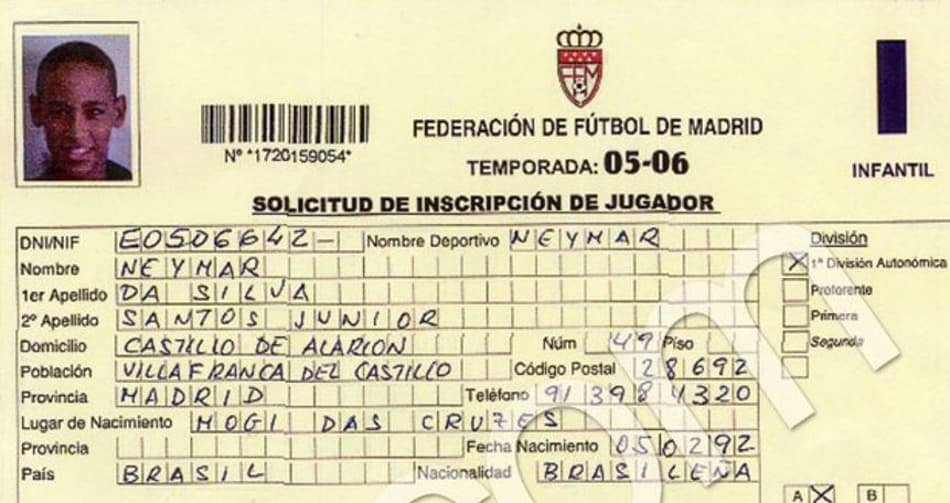 FEDERACIÓN DE FÚTBOL DE MADRID
Nº *1720159054*
TEMPORADA: 05-06
INFANTIL
SOLICITUD DE INSCRIPCIÓN DE JUGADOR
DNI/NIF E0506642- Nombre Deportivo NEYMAR División
Nombre NEYMAR X 1ª División Autonómica
1er Apellido DA SILVA Preferente
2º Apellido SANTOS JUNIOR Primera
Domicilio CASTILLO DE ALARION Núm 49 Piso Segunda
Población VILLAFRANCA DEL CASTILLO Código Postal 28692
Provincia MADRID Teléfono 913984320
Lugar de Nacimiento MOGI DAS CRUZES
Provincia Fecha Nacimiento 050292
País BRASIL Nacionalidad BRASILEÑA
A X B
com